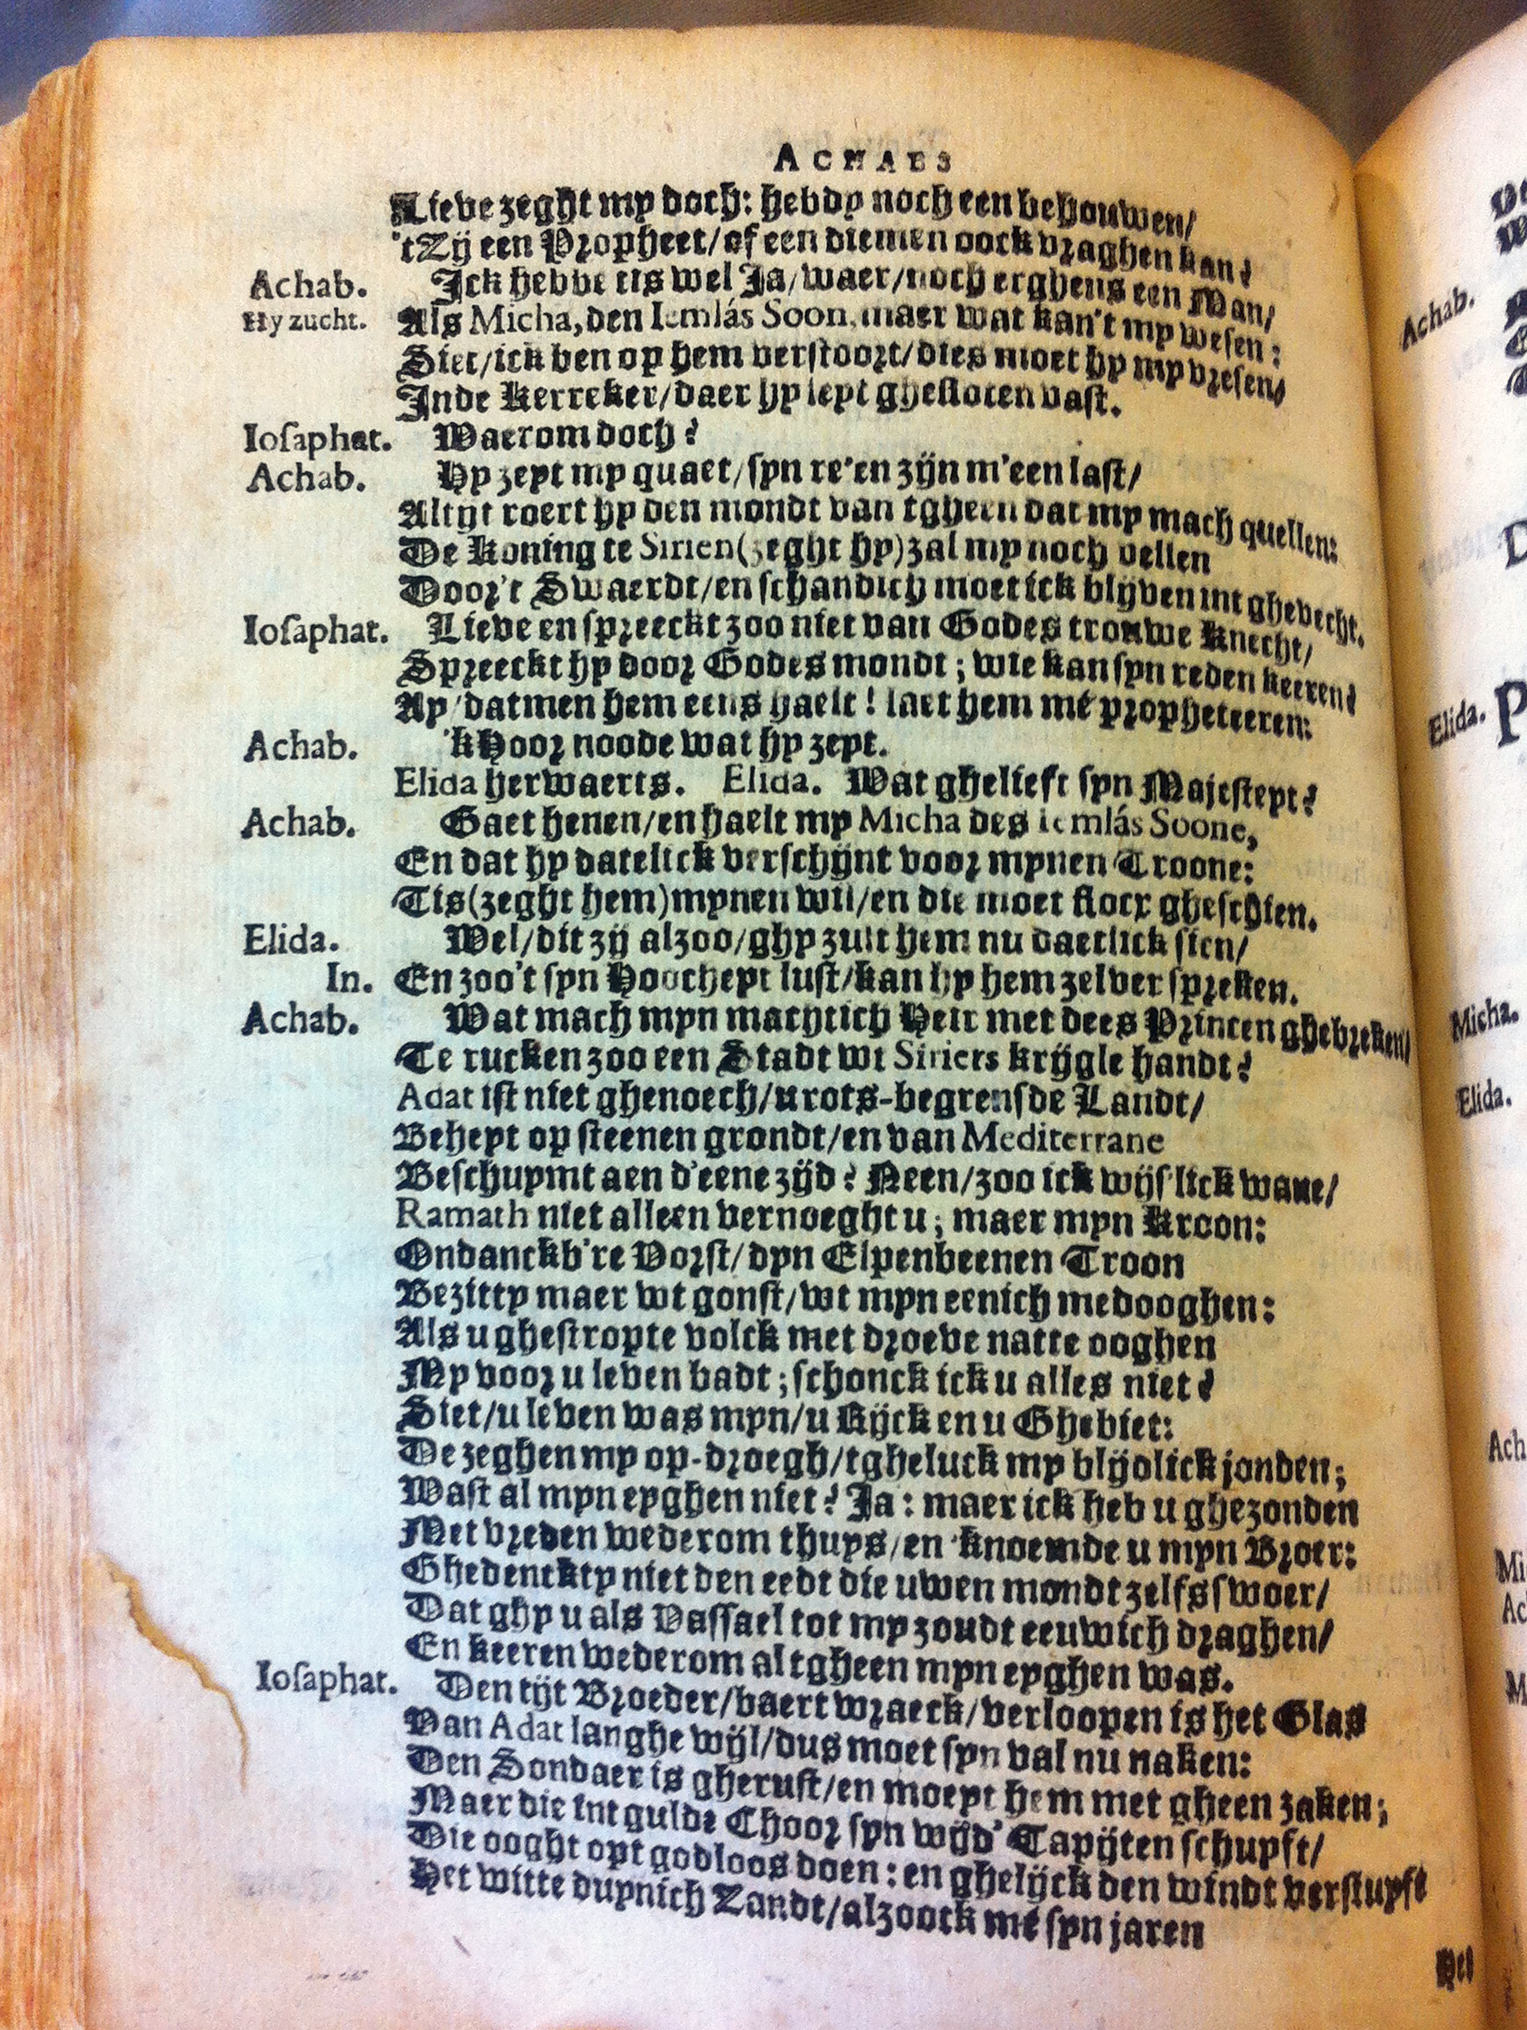 ACHABS
Lieve zeght my doch: hebdy noch een behouwen/
'tZy een Propheet/of een diemen oock vraghen kan?
Achab. Ick hebbe tis wel Ja/waer/noch erghens een Man/
Hy zucht. Als Micha, den Iemlás Soon, maer wat kan't my wesen:
Siet/ick ben op hem verstoort/dies moet hy my vresen/
Inde Kerreker/daer hy leyt ghesloten vast.
Iosaphat. Waerom doch?
Achab. Hy zeyt my quaet/syn re'en zijn m'een last/
Altijt roert hy den mondt van tgheen dat my mach quellen:
De Koning te Sirien(zeght hy)zal my noch vellen
Door't Swaerdt/en schandich moet ick blijven int ghevecht.
Iosaphat. Lieve en spreeckt zoo niet van Godes trouwe Knecht/
Spreeckt hy door Godes mondt; wie kan syn reden keeren?
Ay/datmen hem eens haelt! laet hem mé propheteeren:
Achab. 'kHoor noode wat hy zeyt.
Elida herwaerts. Elida. Wat ghelieft syn Majesteyt?
Achab. Gaet henen/en haelt my Micha des Iemlás Soone,
En dat hy datelick verschijnt voor mynen Troone:
Tis(zeght hem)mynen wil/en die moet flocx gheschien.
Elida. Wel/dit zy alzoo/ghy zult hem nu daetlick sien/
In. En zoo't syn Hoocheyt lust/kan hy hem zelver spreken.
Achab. Wat mach myn machtich Heir met dees Princen ghebreken/
Te rucken zoo een Stadt wt Siriers krijgle handt?
Adat ist niet ghenoech/u rots-begrensde Landt/
Beheyt op steenen grondt/en van Mediterrane
Beschuymt aen d'eene zijd? Neen/zoo ick wijs'lick wane/
Ramath niet alleen vernoeght u; maer myn Kroon:
Ondanckb're Vorst/dyn Elpenbeenen Troon
Bezitty maer wt gonst/wt myn eenich medooghen:
Als u ghestropte volck met droeve natte ooghen
My voor u leven badt; schonck ick u alles niet?
Siet/u leven was myn/u Rijck en u Ghebiet:
De zeghen my op-droegh/tgheluck my blijolick jonden;
Wast al myn eyghen niet? Ja: maer ick heb u ghezonden
Met vreden wederom thuys/en 'knoemde u myn Broer:
Ghedenckty niet den eedt die uwen mondt zelfs swoer/
Dat ghy u als Vassael tot my zoudt eeuwich draghen/
En keeren wederom al tgheen myn eyghen was.
Iosaphat. Den tijt Broeder/baert wraeck/verloopen is het Glas
Van Adat langhe wijl/dus moet syn val nu naken:
Den Sondaer is gherust/en moeyt hem met gheen zaken;
Maer die int gulde Choor syn wijd' Tapijten schuyft/
Die ooght opt godloos doen: en ghelijck den windt verstuyft
Het witte duynich Zandt/alzoock mé syn jaren
Achab.
Elida.
Micha.
Elida.